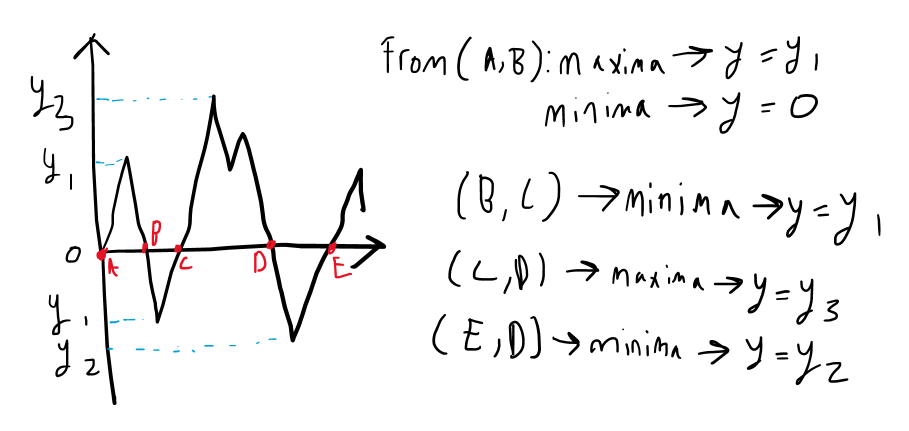 y3
y1
0
A
B
C
D
E
y1
y2
From (A,B): maxima → y = y1
minima → y = 0
(B,C) → minima → y = y1
(C,D) → maxima → y = y3
(E,D] → minima → y = y2